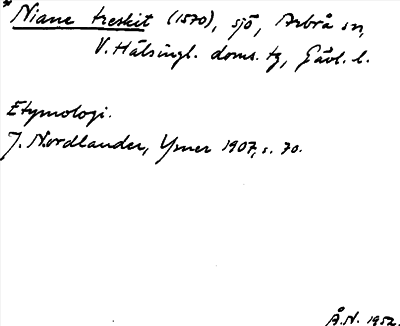 * Niane treskit (1570), sjö, Arbrå sn,
V. Hälsingl. doms. tg, Gävl. l.
Etymologi.
J. Nordlander, Ymer 1907, s. 70.
Å.N. 1952.